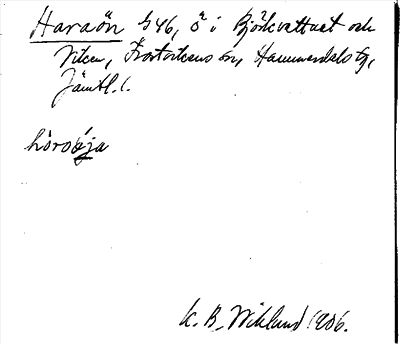 Haraön G46, ö i Björkvattnet och
Viken, Frostvikens sn, Hammerdals tg,
Jämtl. l.
håroøja
K. B. Wiklund 1906.